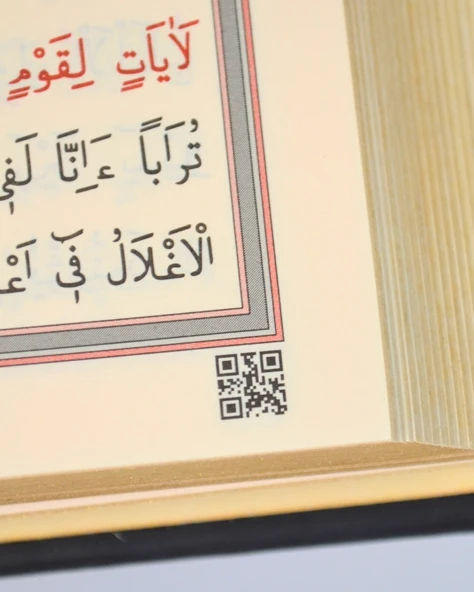 لَاٰيَاتٍ لِقَوْمٍ
تُرَاباً ءَاِنَّا لَفٖي
الْاَغْلَالُ فٖٓي